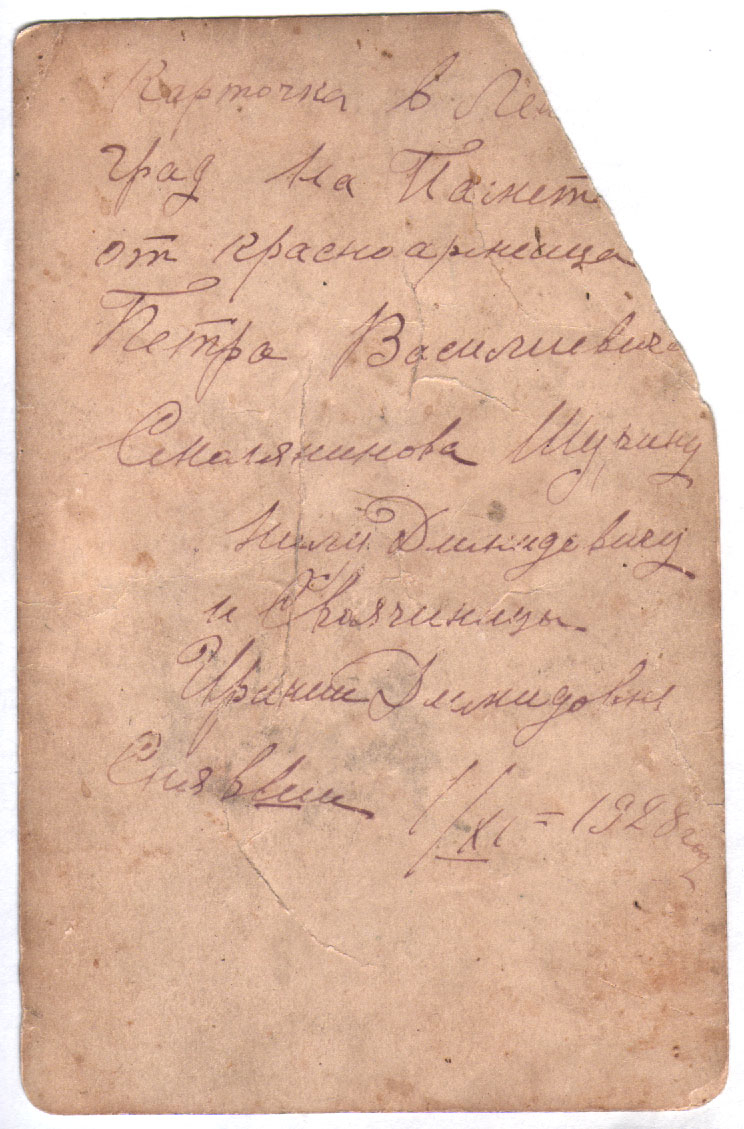 Карточка в Лен
град на Памет
от красноармеица
Петра Василиевича
Смолянинова Щучину
Демидовичу
и Своячиницы
Ирини Демидовне
Снявши 1/XI = 1928 год